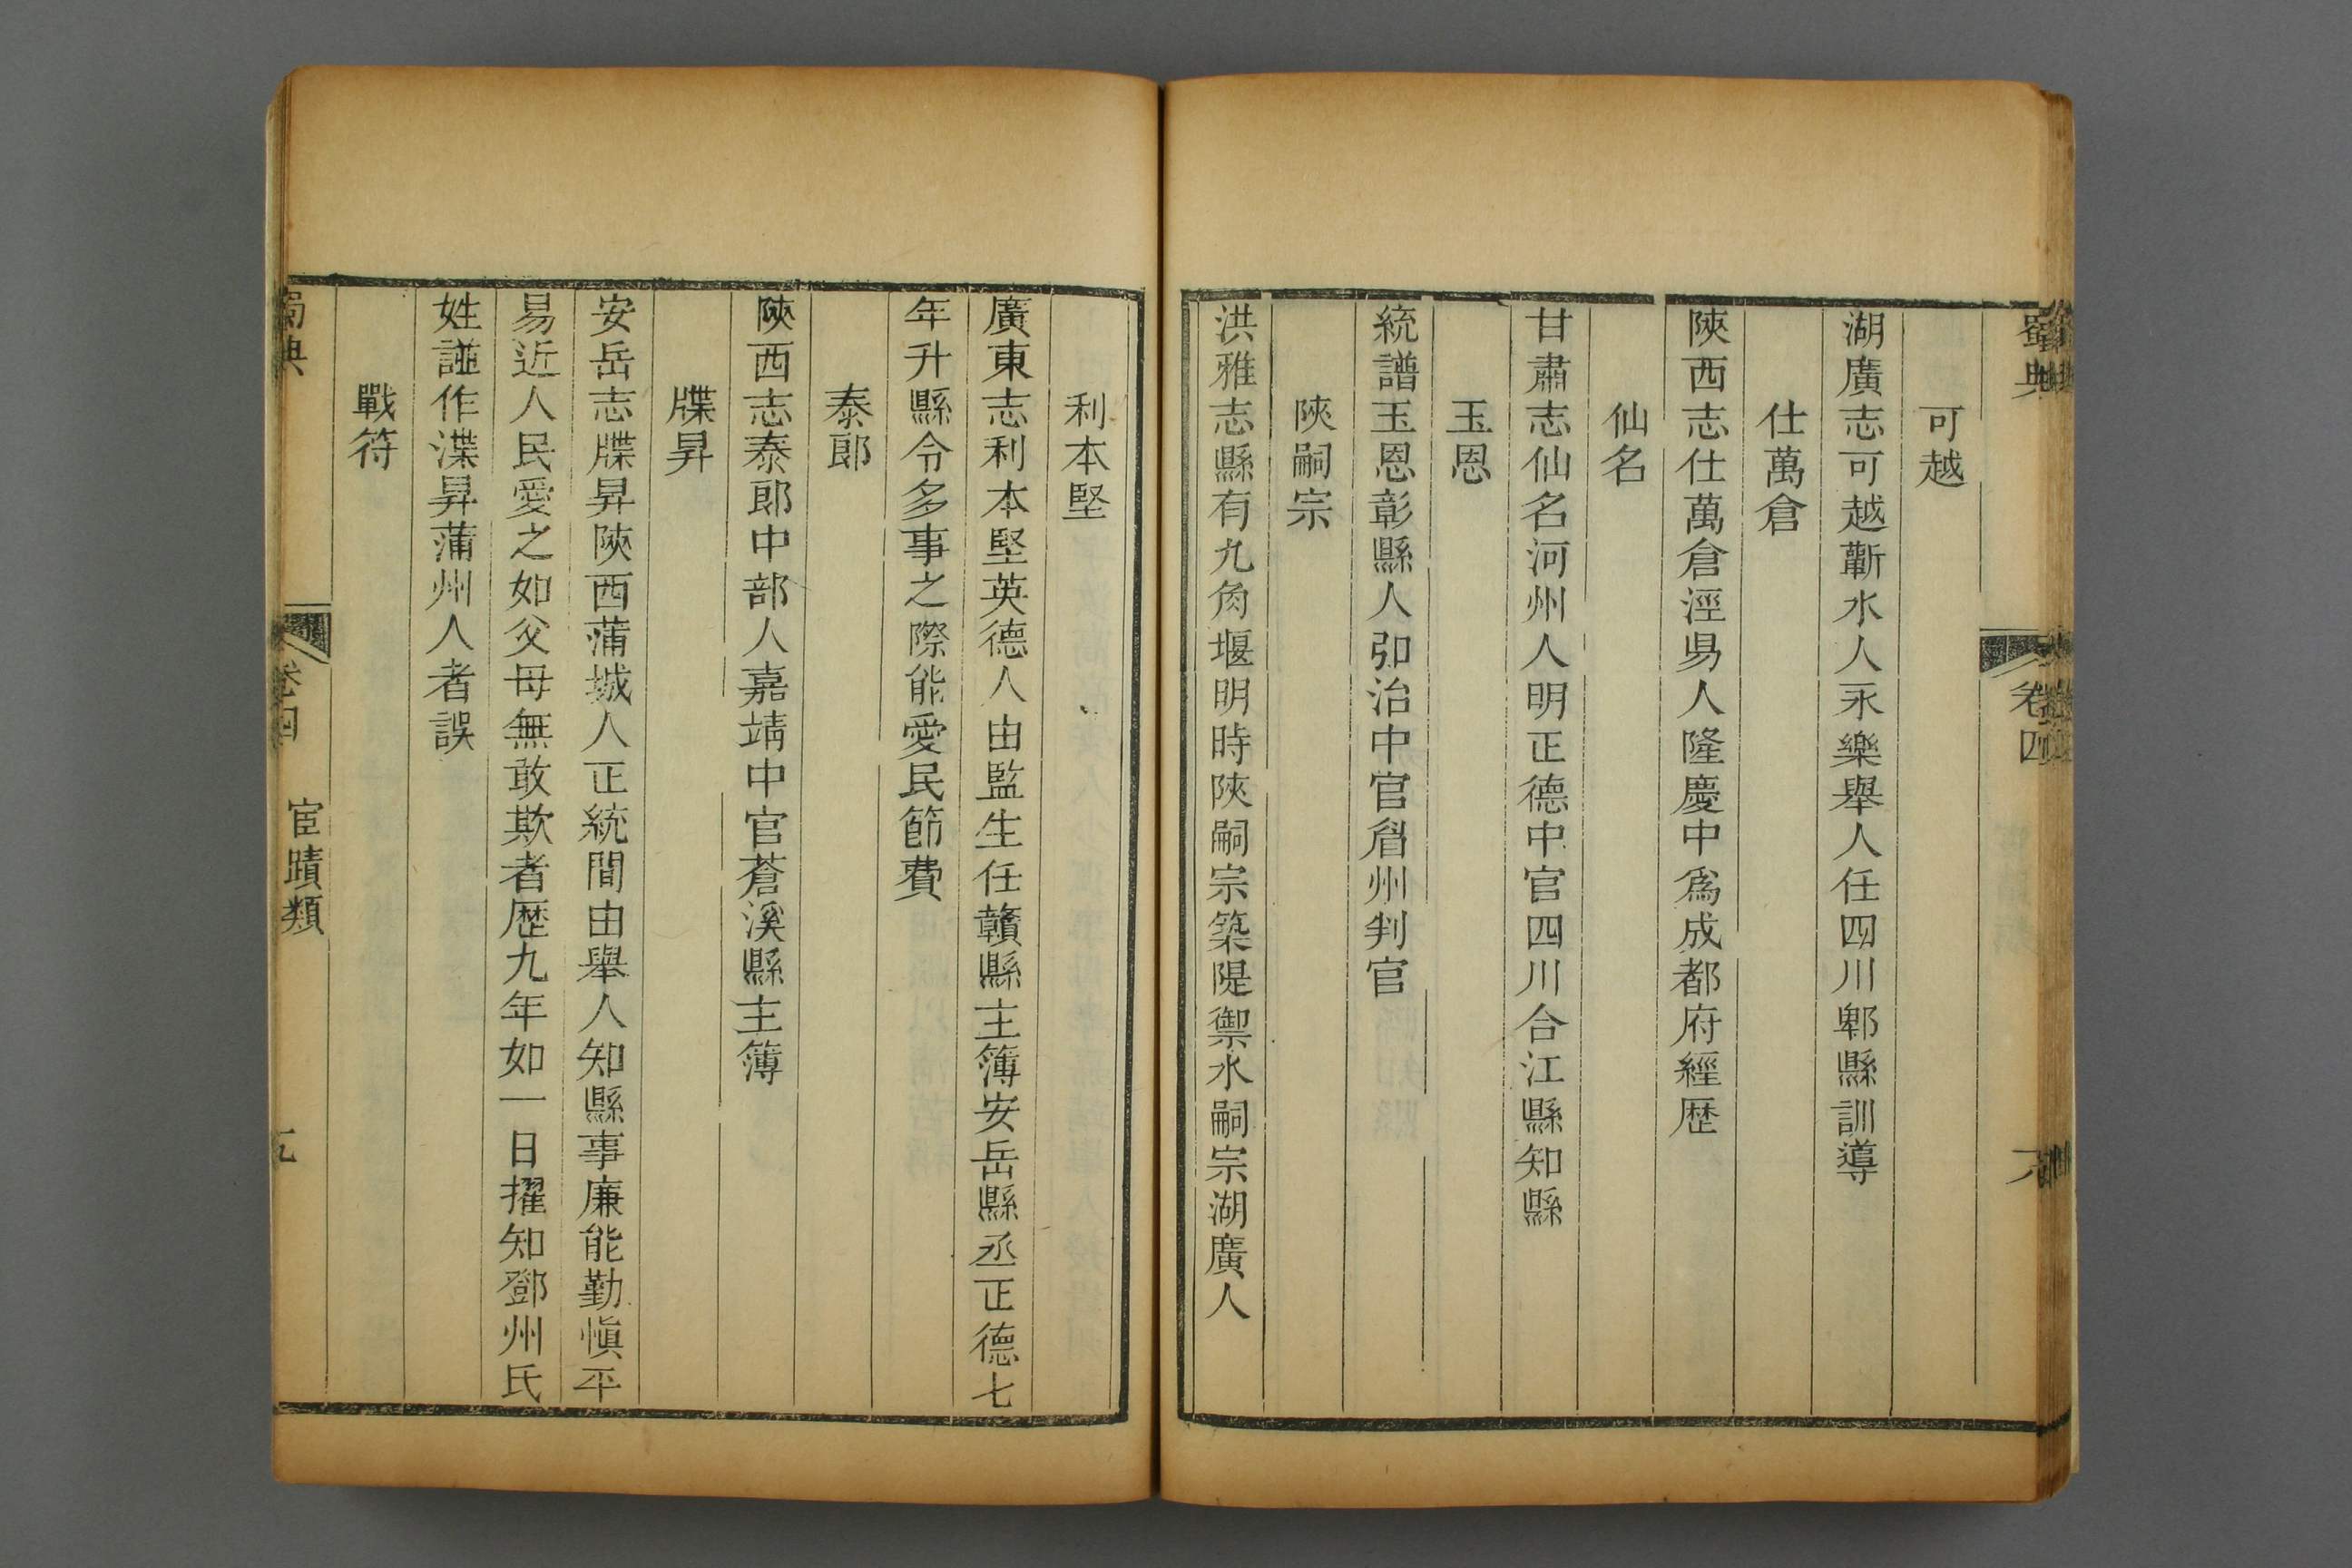 蜀典
卷四
可越
湖廣志可越蘄水人永樂舉人任四川郫縣訓導
仕萬倉
陝西志仕萬倉涇易人隆慶中爲成都府經歷
仙名
甘肅志仙名河州人明正德中官四川合江縣知縣
玉恩
統譜玉恩彰縣人弘治中官眉州判官
陝嗣宗
洪雅志縣有九角堰明時陝嗣宗築隄禦水嗣宗湖廣人
利本堅
廣東志利本堅英德人由監生任贛縣主簿安岳縣丞正德七
年升縣令多事之際能愛民節費
泰郎
陝西志泰郎中部人嘉靖中官蒼溪縣主簿
牒昇
安岳志牒昇陝西蒲城人正統間由舉人知縣事廉能勤慎平
易近人民愛之如父母無敢欺者歷九年如一日擢知鄧州氏
姓譜作渫昇蒲州人者誤
戰符
蜀典
卷四
宦蹟類